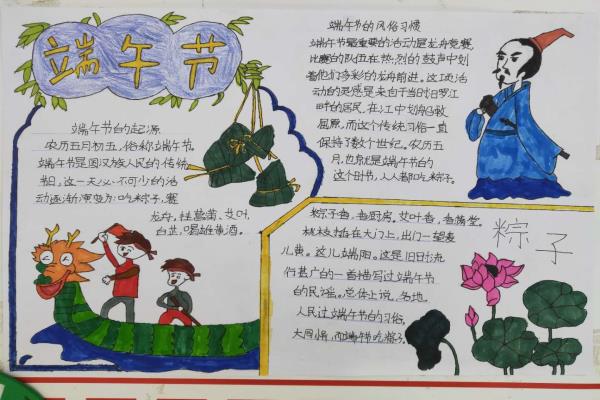 端午节
端午节的起源
农历五月初五,俗称端午节。
端午节是因汉族人民的传统
节日,这一天必不可少的活
动逐渐演变为:吃粽子,赛
龙舟,挂菖蒲、艾叶、
白芷,喝雄黄酒。
端午节的风俗习惯
端午节最重要的活动是龙舟竞赛,
比赛的队伍在热烈的鼓声中划
着他们多彩的龙舟前进。这项活
动的灵感是来自于当时汨罗江
畔的居民,在江中划船救
屈原,而这个传统习俗一直
保持了数个世纪。农历五
月,也就是端午节的
这个时节,人人都吃粽子。
粽子香,香厨房,艾叶香,香满堂。
桃枝插在大门上,出门一望麦
儿黄。这儿端阳。这是旧时流
传甚广的一首描写过端午节
的民谣。总体上说,各地
人民过端午节的习俗,
大同小异,而端午吃粽子。
粽子